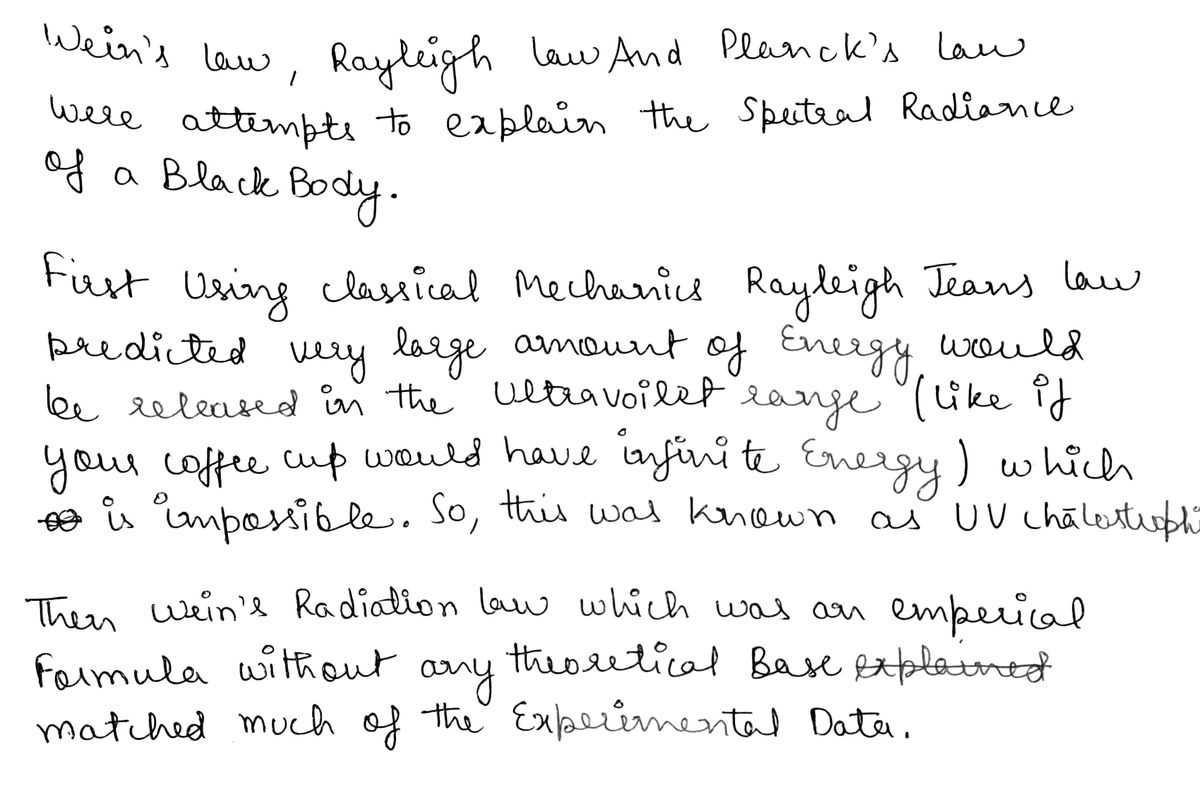 Wein's law, Rayleigh law And Planck's law
were attempts to explain the Spectral Radiance
of a Black Body.
First Using classical Mechanics Rayleigh Jeans law
predicted very large amount of Energy would
be released in the Ultravoilet range (like if
your coffee cup would have infinite Energy) which
is impossible. So, this was known as UV
Then Wein's Radiation law which was an emperical
Formula without any theoretical Base explained
matched much of the Experimental Data.